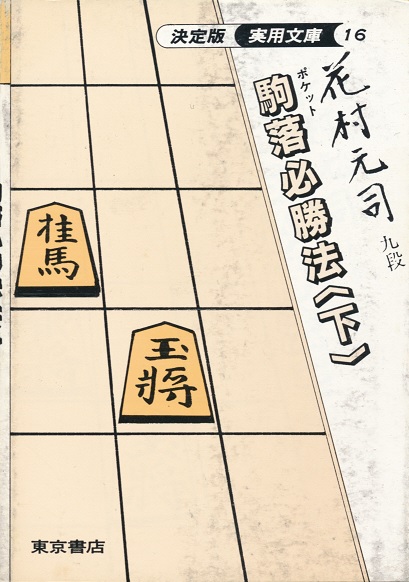 決定版 実用文庫 16
花村元司 九段
ポケット
駒落必勝法〈下〉
桂馬
玉将
東京書店